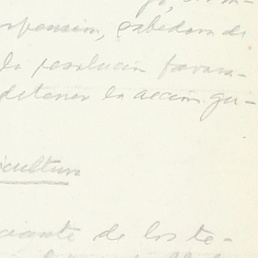 suspension, sabedora de
la resolución favora-
detener la acción gu-
icultura
ciante de los te-